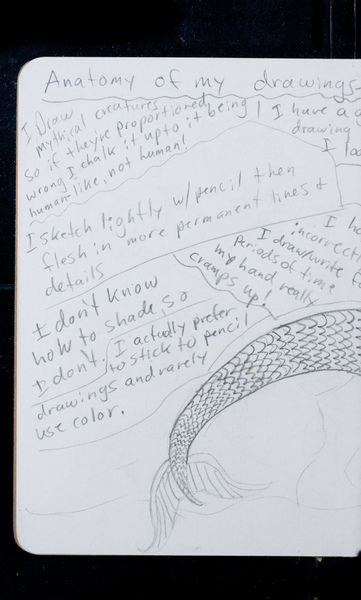 Anatomy of my drawings
I Draw
mythical creatures
so if they're proportioned
wrong I chalk it up to it being
human like, not human!
I have a
drawing
I
I sketch lightly w/ pencil then
flesh in more permanent lines &
details
I
incorrect
I draw/write
Periods of time
my hand really
cramps up!
I don't know
how to shade, so
I don't.
I actually prefer
to stick to pencil
drawings and rarely
use color.